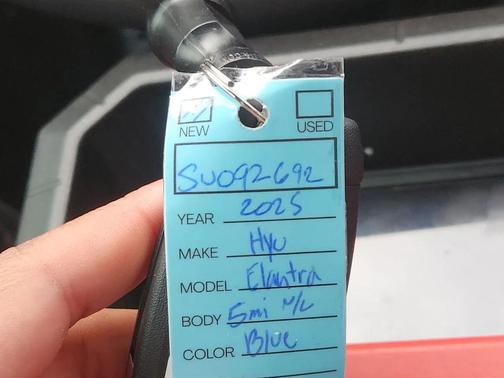 NEW USED
SU092692
YEAR 2025
MAKE Hyu
MODEL Elantra
BODY 5mi
COLOR Blue